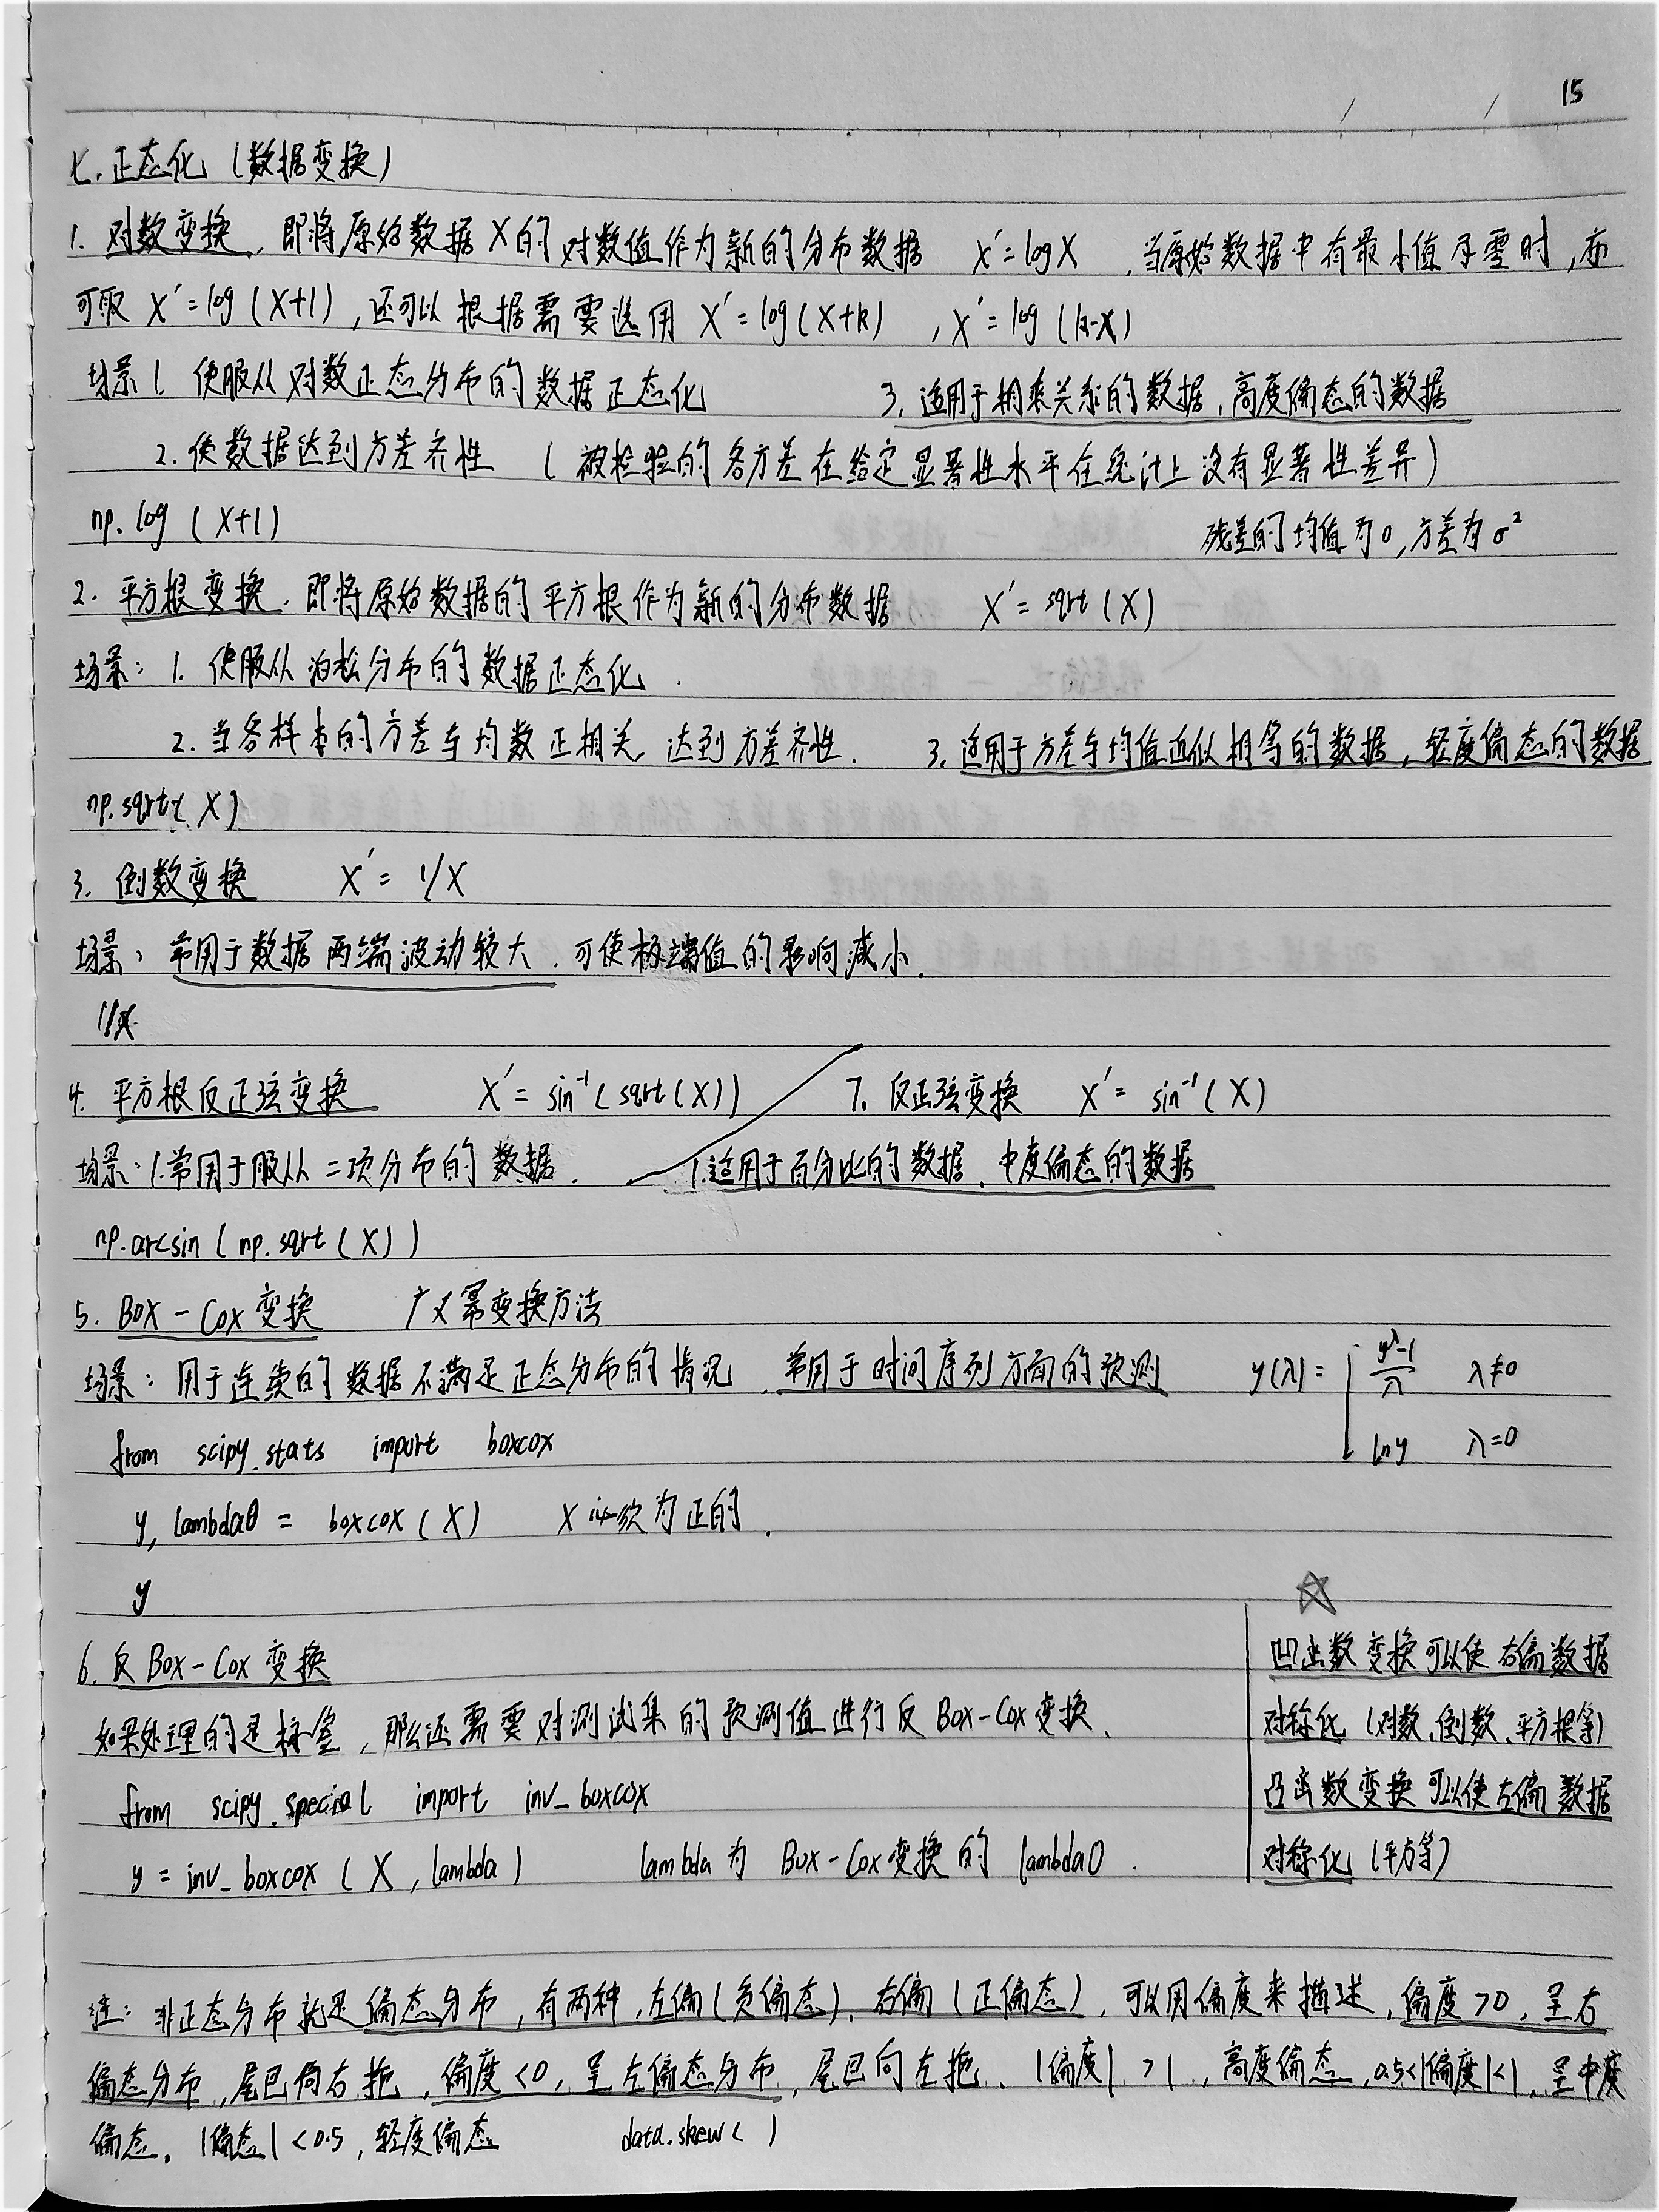 15
七.正态化（数据变换）
1. 对数变换，即将原始数据X的对数值作为新的分布数据 X'=logX ，当原始数据中有最小值及零时，亦
可取 X'=log(X+1)，还可以根据需要选用 X'=log(X+k) ，X'=log(k-X)
场景1. 使服从对数正态分布的数据正态化 3. 适用于相乘关系的数据，高度偏态的数据
2. 使数据达到方差齐性 （被检验的各方差在给定显著性水平在统计上没有显著性差异）
np.log (X+1) 残差的均值为0，方差为σ²
2. 平方根变换，即将原始数据的平方根作为新的分布数据 X'=sqrt(X)
场景：1. 使服从泊松分布的数据正态化.
2. 当各样本的方差与均数正相关，达到方差齐性. 3. 适用于方差与均值近似相等的数据，轻度偏态的数据
np.sqrt(X)
3. 倒数变换 X'=1/X
场景：常用于数据两端波动较大，可使极端值的影响减小.
1/X
4. 平方根反正弦变换 X'=sin⁻¹(sqrt(X)) 7. 反正弦变换 X'=sin⁻¹(X)
场景：1.常用于服从二项分布的数据. 1.适用于百分比的数据、中度偏态的数据
np.arcsin(np.sqrt(X))
5. Box-Cox变换 广义幂变换方法
场景：用于连续的数据不满足正态分布的情况，常用于时间序列方面的预测 y(λ)= { (y^λ-1)/λ λ≠0
from scipy.stats import boxcox lny λ=0
y, lambda0 = boxcox(X) X必须为正的.
y
6. 反Box-Cox变换 凹函数变换可以使右偏数据
如果处理的是标签，那么还需要对测试集的预测值进行反Box-Cox变换、 对称化（对数、倒数、平方根等）
from scipy.special import inv_boxcox 凸函数变换可以使左偏数据
y = inv_boxcox(X, lambda) lambda为Box-Cox变换的lambda0. 对称化（平方等）
注：非正态分布就是偏态分布，有两种，左偏（负偏态），右偏（正偏态），可以用偏度来描述，偏度>0，呈右
偏态分布，尾巴向右拖，偏度<0，呈左偏态分布，尾巴向左拖、|偏度|>1，高度偏态，0.5<|偏度|<1，呈中度
偏态。|偏态|<0.5，轻度偏态 data.skew()